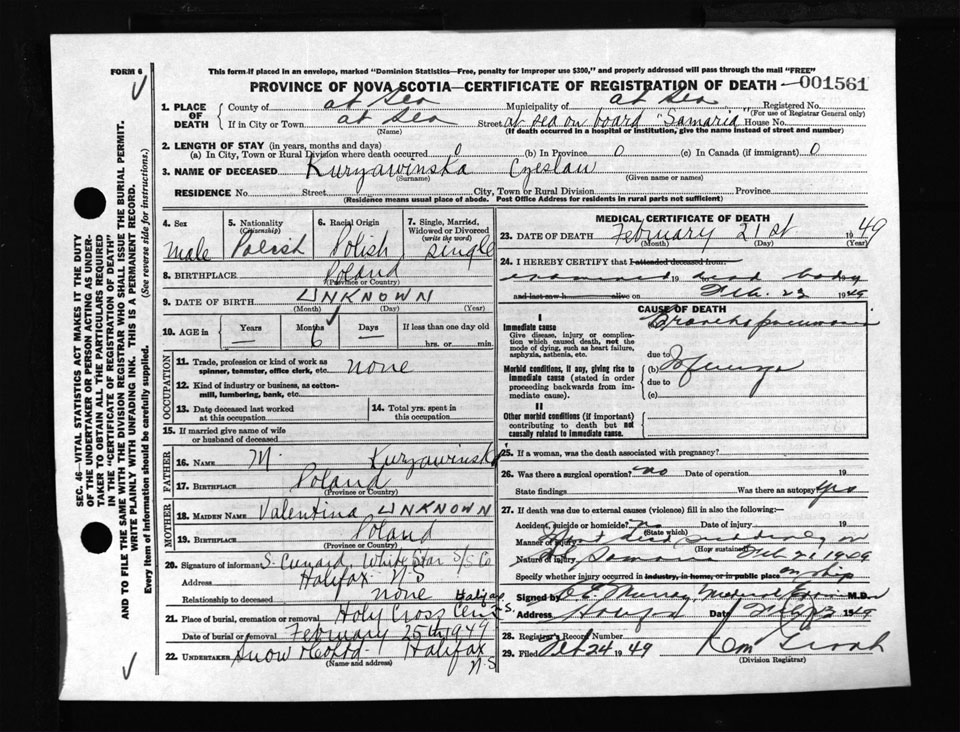 FORM 6
This form if placed in an envelope, marked "Dominion Statistics—Free, penalty for improper use $300," and properly addressed will pass through the mail "FREE"
PROVINCE OF NOVA SCOTIA—CERTIFICATE OF REGISTRATION OF DEATH
001561
1. PLACE OF DEATH County of at Sea Municipality of at Sea Registered No.
(For use of Registrar General only)
If in City or Town at Sea Street at sea on board "Samaria" House No.
(Name) (If death occurred in a hospital or institution, give the name instead of street and number)
2. LENGTH OF STAY (in years, months and days)
(a) In City, Town or Rural Division where death occurred 0 (b) In Province 0 (c) In Canada (if immigrant) 0
3. NAME OF DECEASED Kuryawinska Czeslaw
(Surname) (Given name or names)
RESIDENCE No. Street City, Town or Rural Division Province
(Residence means usual place of abode. Post Office Address for residents in rural parts not sufficient)
4. Sex 5. Nationality (Citizenship) 6. Racial Origin 7. Single, Married, Widowed or Divorced (write the word)
male Polish Polish single
8. BIRTHPLACE Poland
(Province or Country)
9. DATE OF BIRTH UNKNOWN
(Month) (Day) (Year)
10. AGE in Years Months Days If less than one day old
— 6 — hrs. or min.
OCCUPATION
11. Trade, profession or kind of work as spinner, teamster, office clerk, etc. none
12. Kind of industry or business, as cotton-mill, lumbering, bank, etc.
13. Date deceased last worked at this occupation
14. Total yrs. spent in this occupation
15. If married give name of wife or husband of deceased
FATHER
16. NAME M. Kuryawinska
17. BIRTHPLACE Poland
(Province or Country)
MOTHER
18. MAIDEN NAME Valentina UNKNOWN
19. BIRTHPLACE Poland
(Province or Country)
20. Signature of informant S. Cunard White Star S/S Co
Address Halifax N.S
Relationship to deceased none
21. Place of burial, cremation or removal Holy Cross Cem Halifax N.S.
Date of burial or removal February 25th 1949
22. UNDERTAKER Snow & Co Ltd. Halifax N.S
(Name and address)
MEDICAL CERTIFICATE OF DEATH
23. DATE OF DEATH February 21st 1949
(Month) (Day) (Year)
24. I HEREBY CERTIFY that I attended deceased from
examined 19 dead body
and last saw h alive on Feb. 23 1949
CAUSE OF DEATH
I
Immediate cause
Give disease, injury or complication which caused death, not the mode of dying, such as heart failure, asphyxia, asthenia, etc.
Bronchopneumonia
due to
Morbid conditions, if any, giving rise to immediate cause (stated in order proceeding backwards from immediate cause).
(b)
due to
(c)
II
Other morbid conditions (if important) contributing to death but not causally related to immediate cause.
25. If a woman, was the death associated with pregnancy?
26. Was there a surgical operation? no Date of operation 19
State findings Was there an autopsy yes
27. If death was due to external causes (violence) fill in also the following:—
Accident, suicide or homicide? no Date of injury 19
(State which)
Manner of injury died suddenly on
(How sustained)
Nature of injury Samaria Feb 21 1949
Specify whether injury occurred in industry, in home, or in public place on ship
Signed by Murray, Medical Examiner M.D.
Address Date Feb 23 1949
28. Registrar's Record Number
29. Filed Feb 24 1949
(Division Registrar)
SEC. 46—VITAL STATISTICS ACT MAKES IT THE DUTY
OF THE UNDERTAKER OR PERSON ACTING AS UNDER-
TAKER TO OBTAIN ALL THE PARTICULARS REQUIRED
IN THE "CERTIFICATE OF REGISTRATION OF DEATH"
AND TO FILE THE SAME WITH THE DIVISION REGISTRAR WHO SHALL ISSUE THE BURIAL PERMIT.
WRITE PLAINLY WITH UNFADING INK. THIS IS A PERMANENT RECORD.
Every item of information should be carefully supplied. (See reverse side for instructions.)